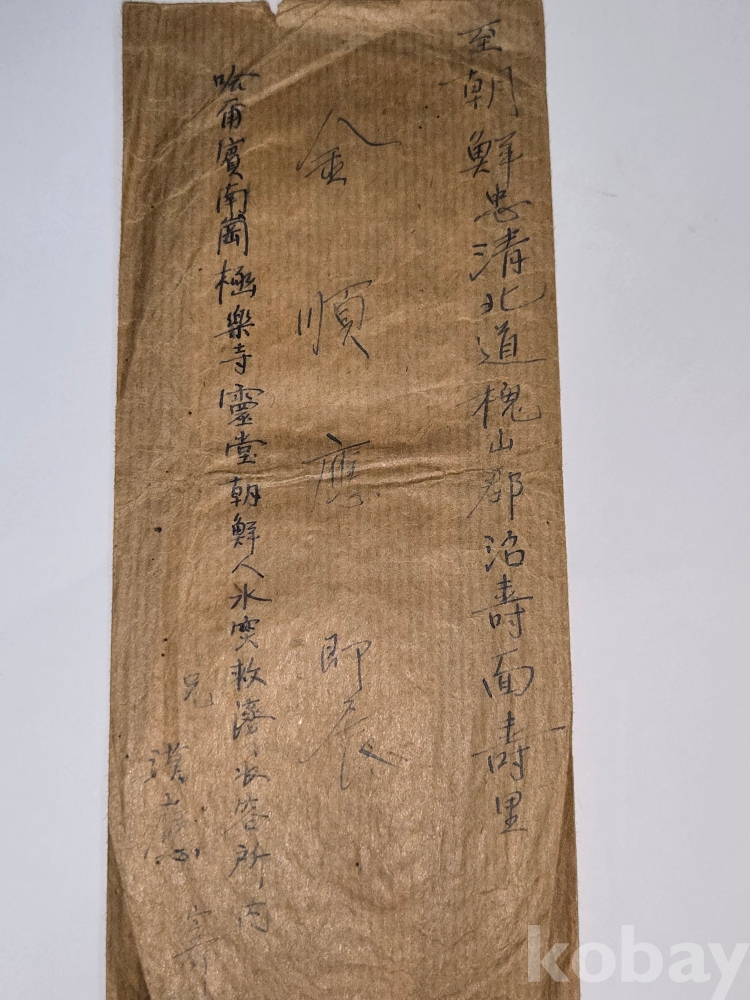 至朝鮮忠清北道槐山郡沼壽面壽里
金順應即展
哈爾賓南崗極樂寺靈堂朝鮮人水害救濟收容所内
兄 漢應 寄
kobay